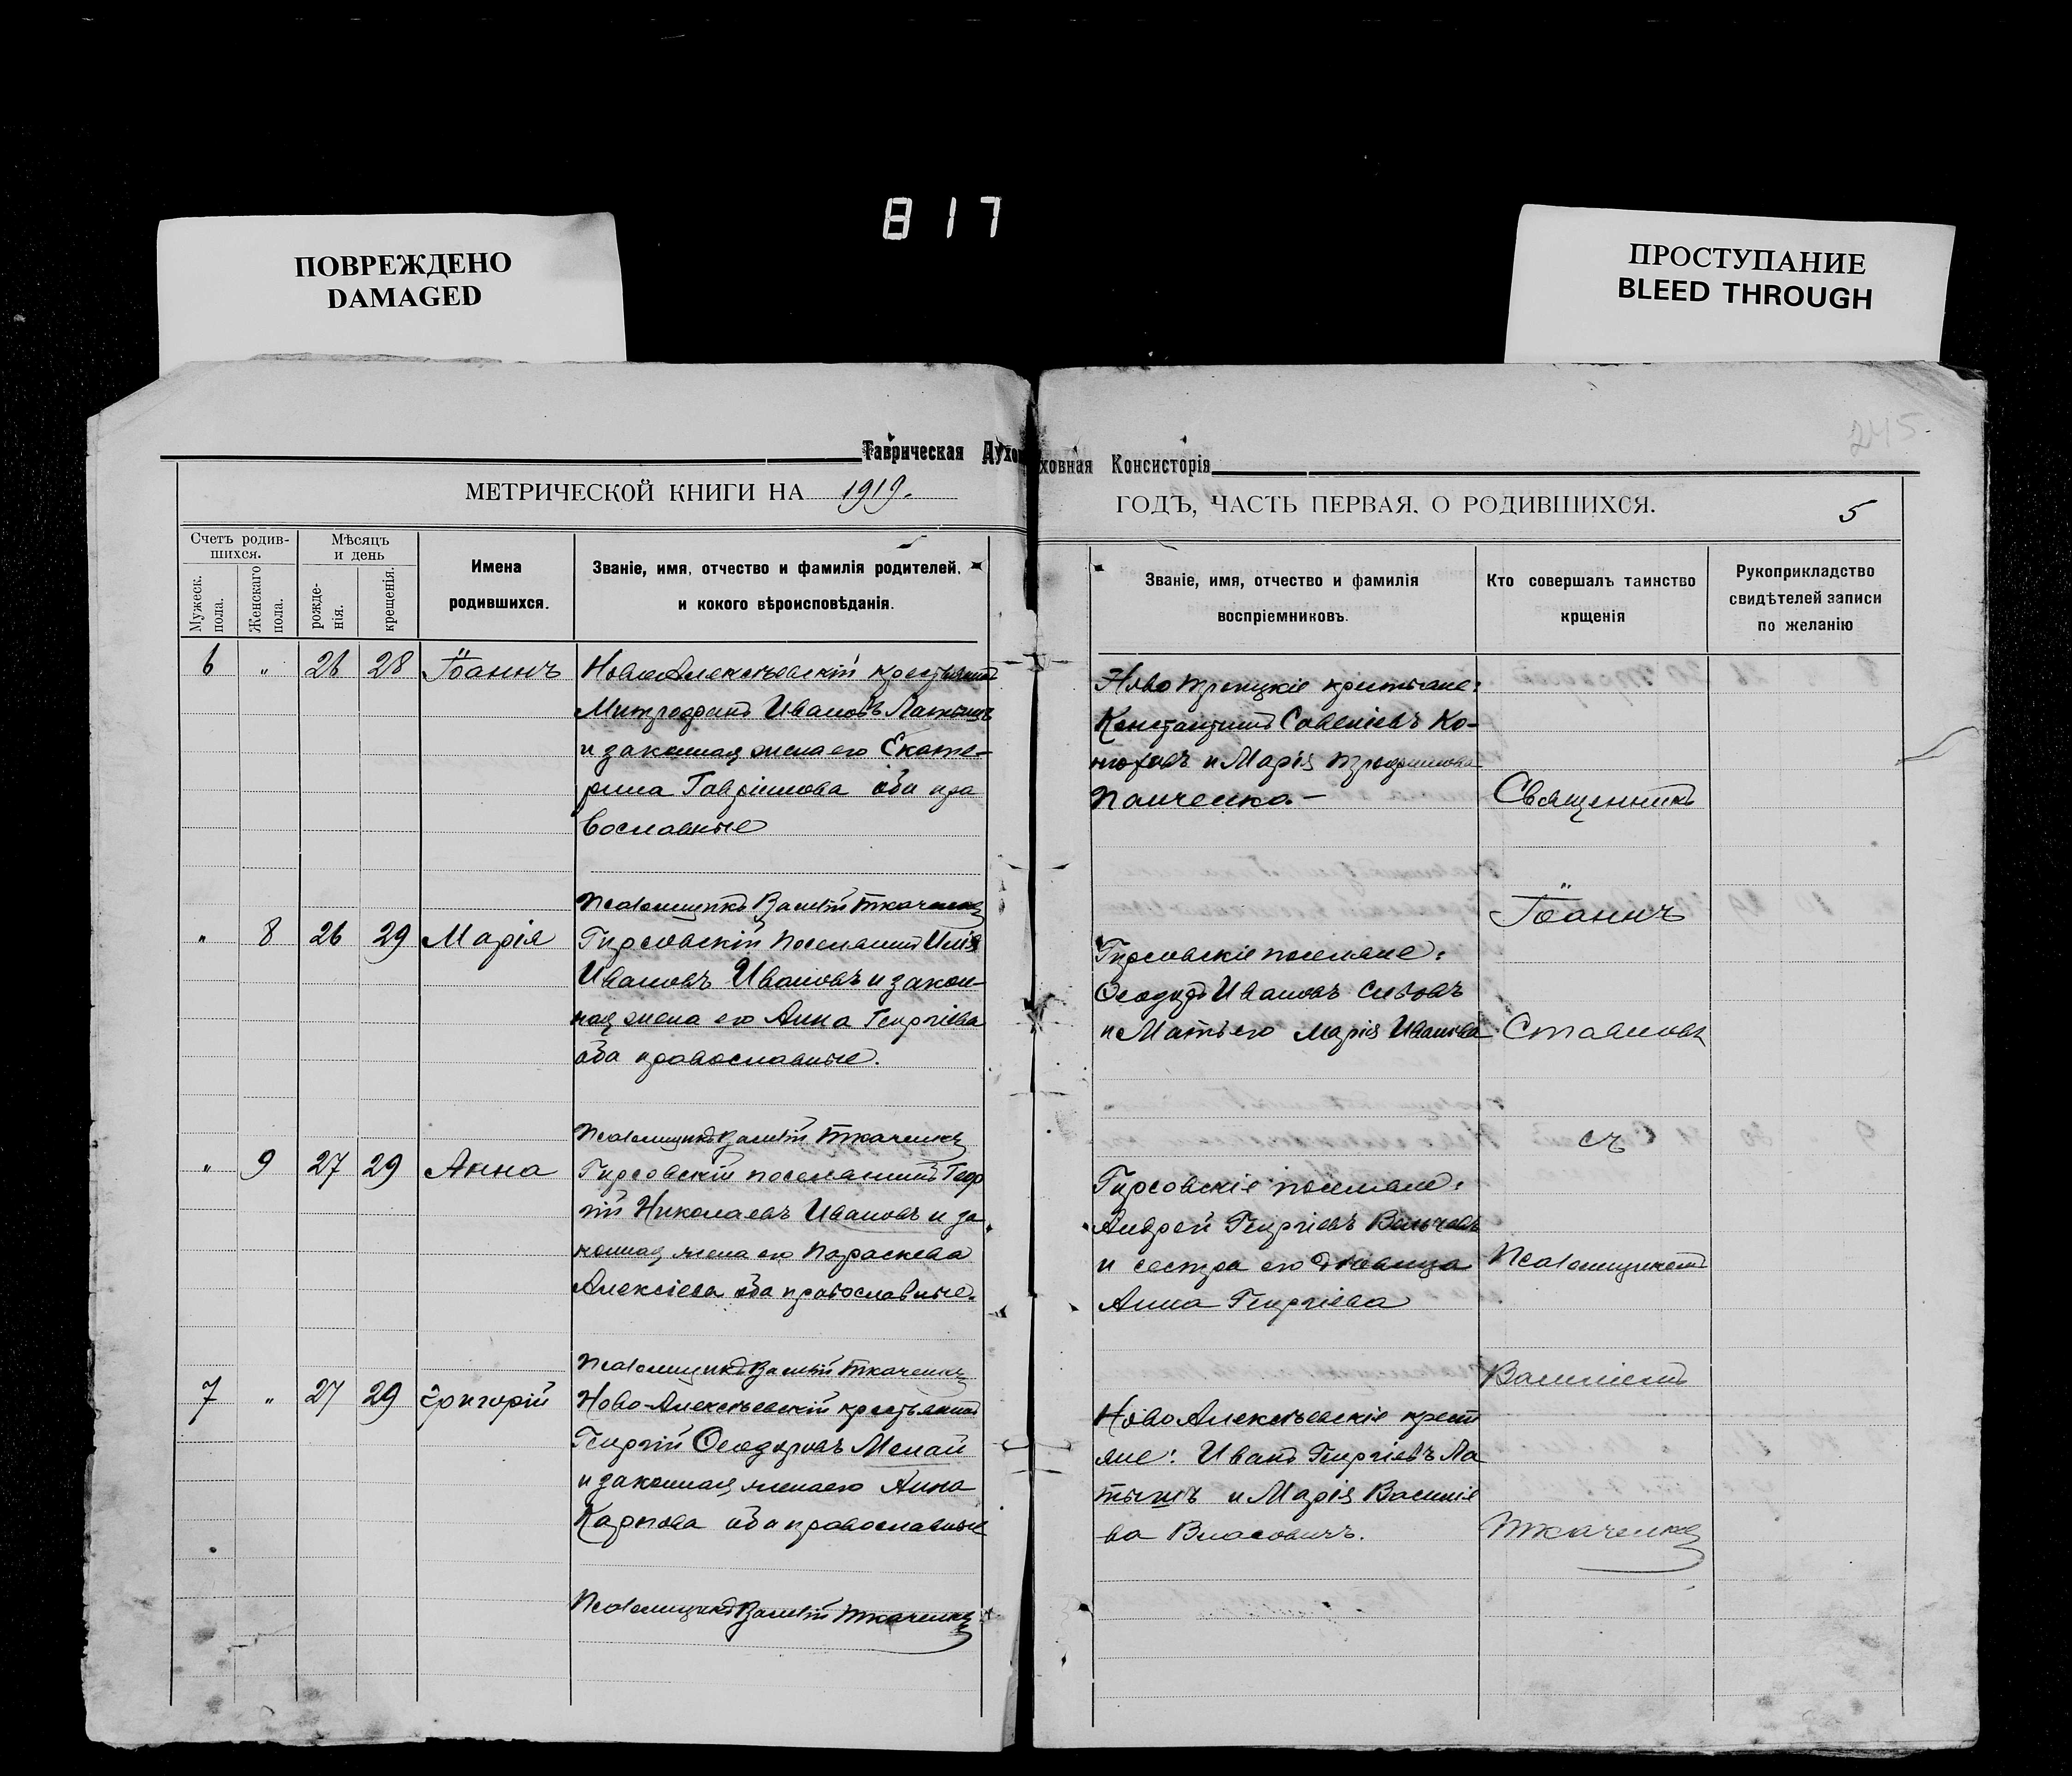 817
ПОВРЕЖДЕНО
DAMAGED
ПРОСТУПАНИЕ
BLEED THROUGH
245.
Таврическая Духовная Консисторія
МЕТРИЧЕСКОЙ КНИГИ НА 1919.
Счетъ родив-
шихся.
Мужеск.
пола.
Женскаго
пола.
Мѣсяцъ
и день
рожде-
нія.
крещенія.
Имена
родившихся.
Званіе, имя, отчество и фамилія родителей,
и кокого вѣроисповѣданія.
6 " 26 28 Іоаннъ Новоалексѣевскій крестьянинъ
Митрофанъ Ивановъ Латышъ
и законная жена его Екате-
рина Гавріилова оба пра
вославные
Псаломщикъ Василій Ткаченко
" 8 26 29 Марія Гирсовскій поселянинъ Илія
Ивановъ Ивановъ и закон-
ная жена его Анна Георгіева
оба православные.
Псаломщикъ Василій Ткаченко
" 9 27 29 Анна Гирсовскій поселянинъ Геор
гій Николаевъ Ивановъ и за
конная жена его Параскева
Алексіева оба православные.
Псаломщикъ Василій Ткаченко
7 " 27 29 Григорій Ново-Алексѣевскій крестьянинъ
Георгій Ѳеодоровъ Мемай
и законная жена его Анна
Карпова оба православные
Псаломщикъ Василій Ткаченко
ГОДЪ, ЧАСТЬ ПЕРВАЯ, О РОДИВШИХСЯ.
5
Званіе, имя, отчество и фамилія
воспріемниковъ.
Кто совершалъ таинство
крщенія
Рукоприкладство
свидѣтелей записи
по желанію
Ново троицкіе крестьяне:
Константинъ Савеліевъ Ко-
и Марія Трофимова
Панченко.-
Гирсовскіе поселяне:
Ѳеодоръ Ивановъ Сивовъ
и Мать его Марія Иванова
Гирсовскіе поселяне:
Андрей Георгіевъ Вальчевъ
и сестра его дѣвица
Анна Георгіева
Ново Алексѣевскіе крест
яне: Иванъ Георгіевъ Ла
тышъ и Марія Василіе
ва Власовичъ.
Священникъ
Іоаннъ
Стаяновъ
съ
Псаломщикомъ
Василіемъ
Ткаченко